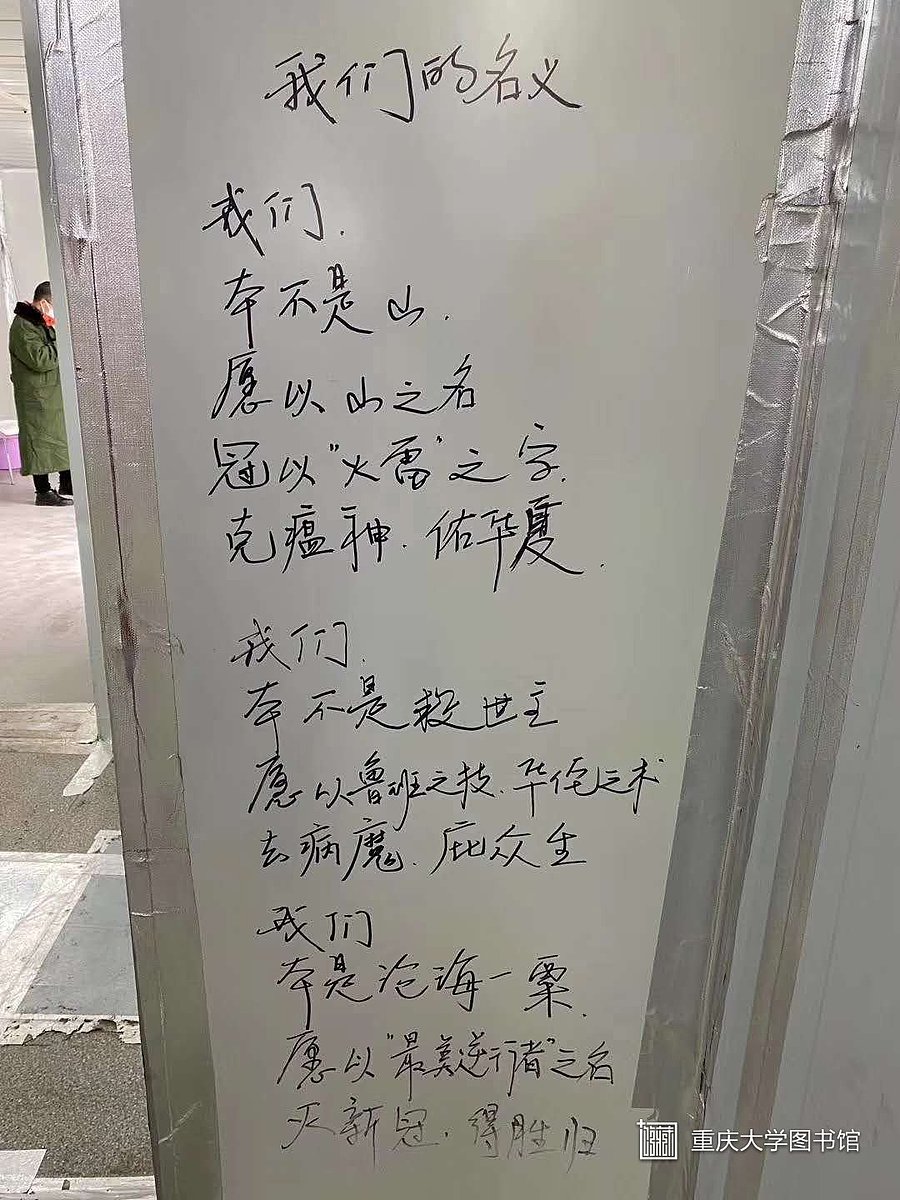 我们的名义
我们.
本不是山.
愿以山之名
冠以"火雷"之字.
克瘟神.佑华夏.
我们.
本不是救世主
愿以鲁班之技.华佗之术
去病魔.庇众生
我们
本是沧海一粟.
愿以"最美逆行者"之名
灭新冠.得胜归
重庆大学图书馆